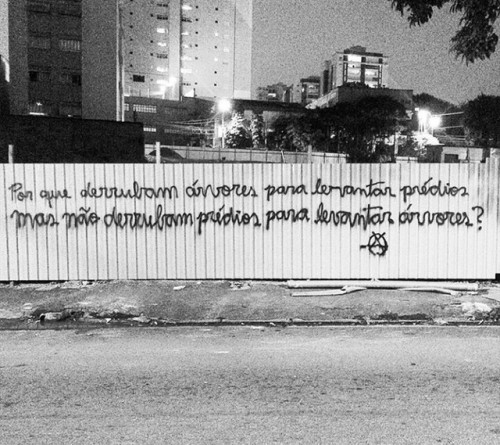 Por que derrubam árvores para levantar prédios
mas não derrubam prédios para levantar árvores?